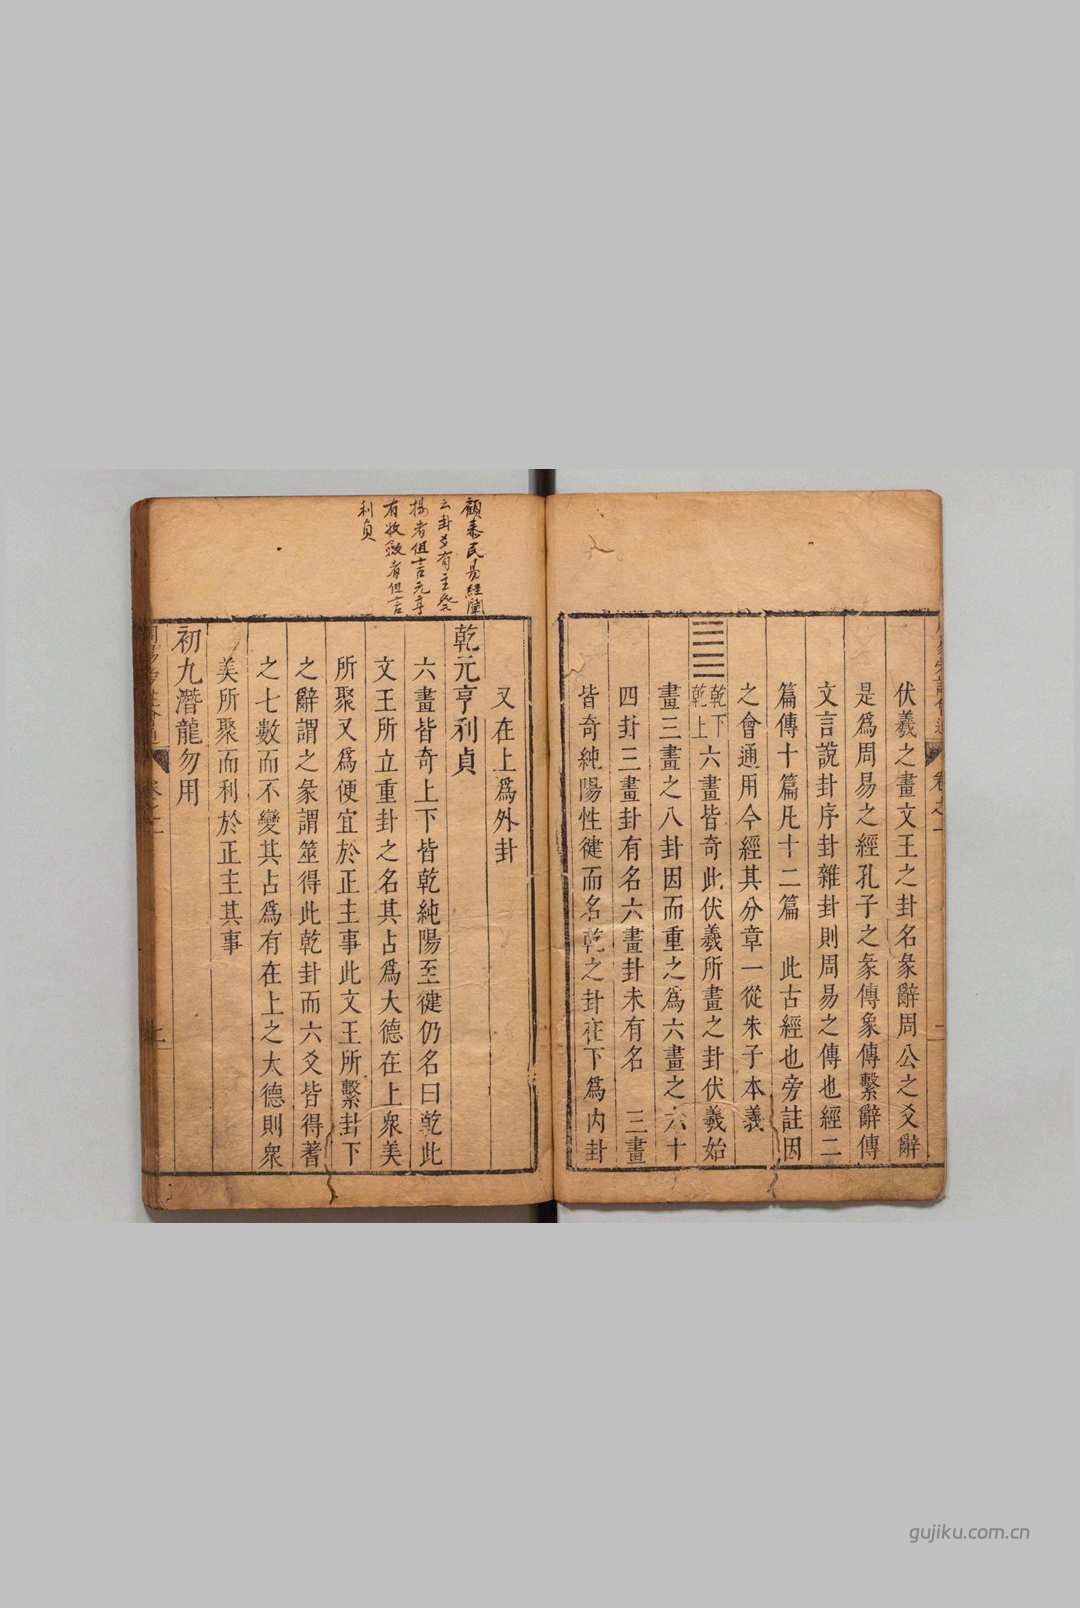 伏羲之畫文王之卦名彖辭周公之爻辭
是爲周易之經孔子之彖傳象傳繫辭傳
文言說卦序卦雜卦則周易之傳也經二
篇傳十篇凡十二篇　此古經也旁註因
之會通用今經其分章一從朱子本義
乾下乾上六畫皆奇此伏羲所畫之卦伏羲始
畫三畫之八卦因而重之爲六畫之六十
四卦三畫卦有名六畫卦未有名　三畫
皆奇純陽性健而名乾之卦在下爲内卦
又在上爲外卦
乾元亨利貞
六畫皆奇上下皆乾純陽至健仍名曰乾此
文王所立重卦之名其占爲大德在上衆美
所聚又爲便宜於正主事此文王所繫卦下
之辭謂之彖謂筮得此乾卦而六爻皆得蓍
之七數而不變其占爲有在上之大德則衆
美所聚而利於正主其事
初九潛龍勿用
卷之一
顧 民易經
云卦爻有主發
揚者但言元亨
有收斂者但言
利貞
gujiku.com.cn